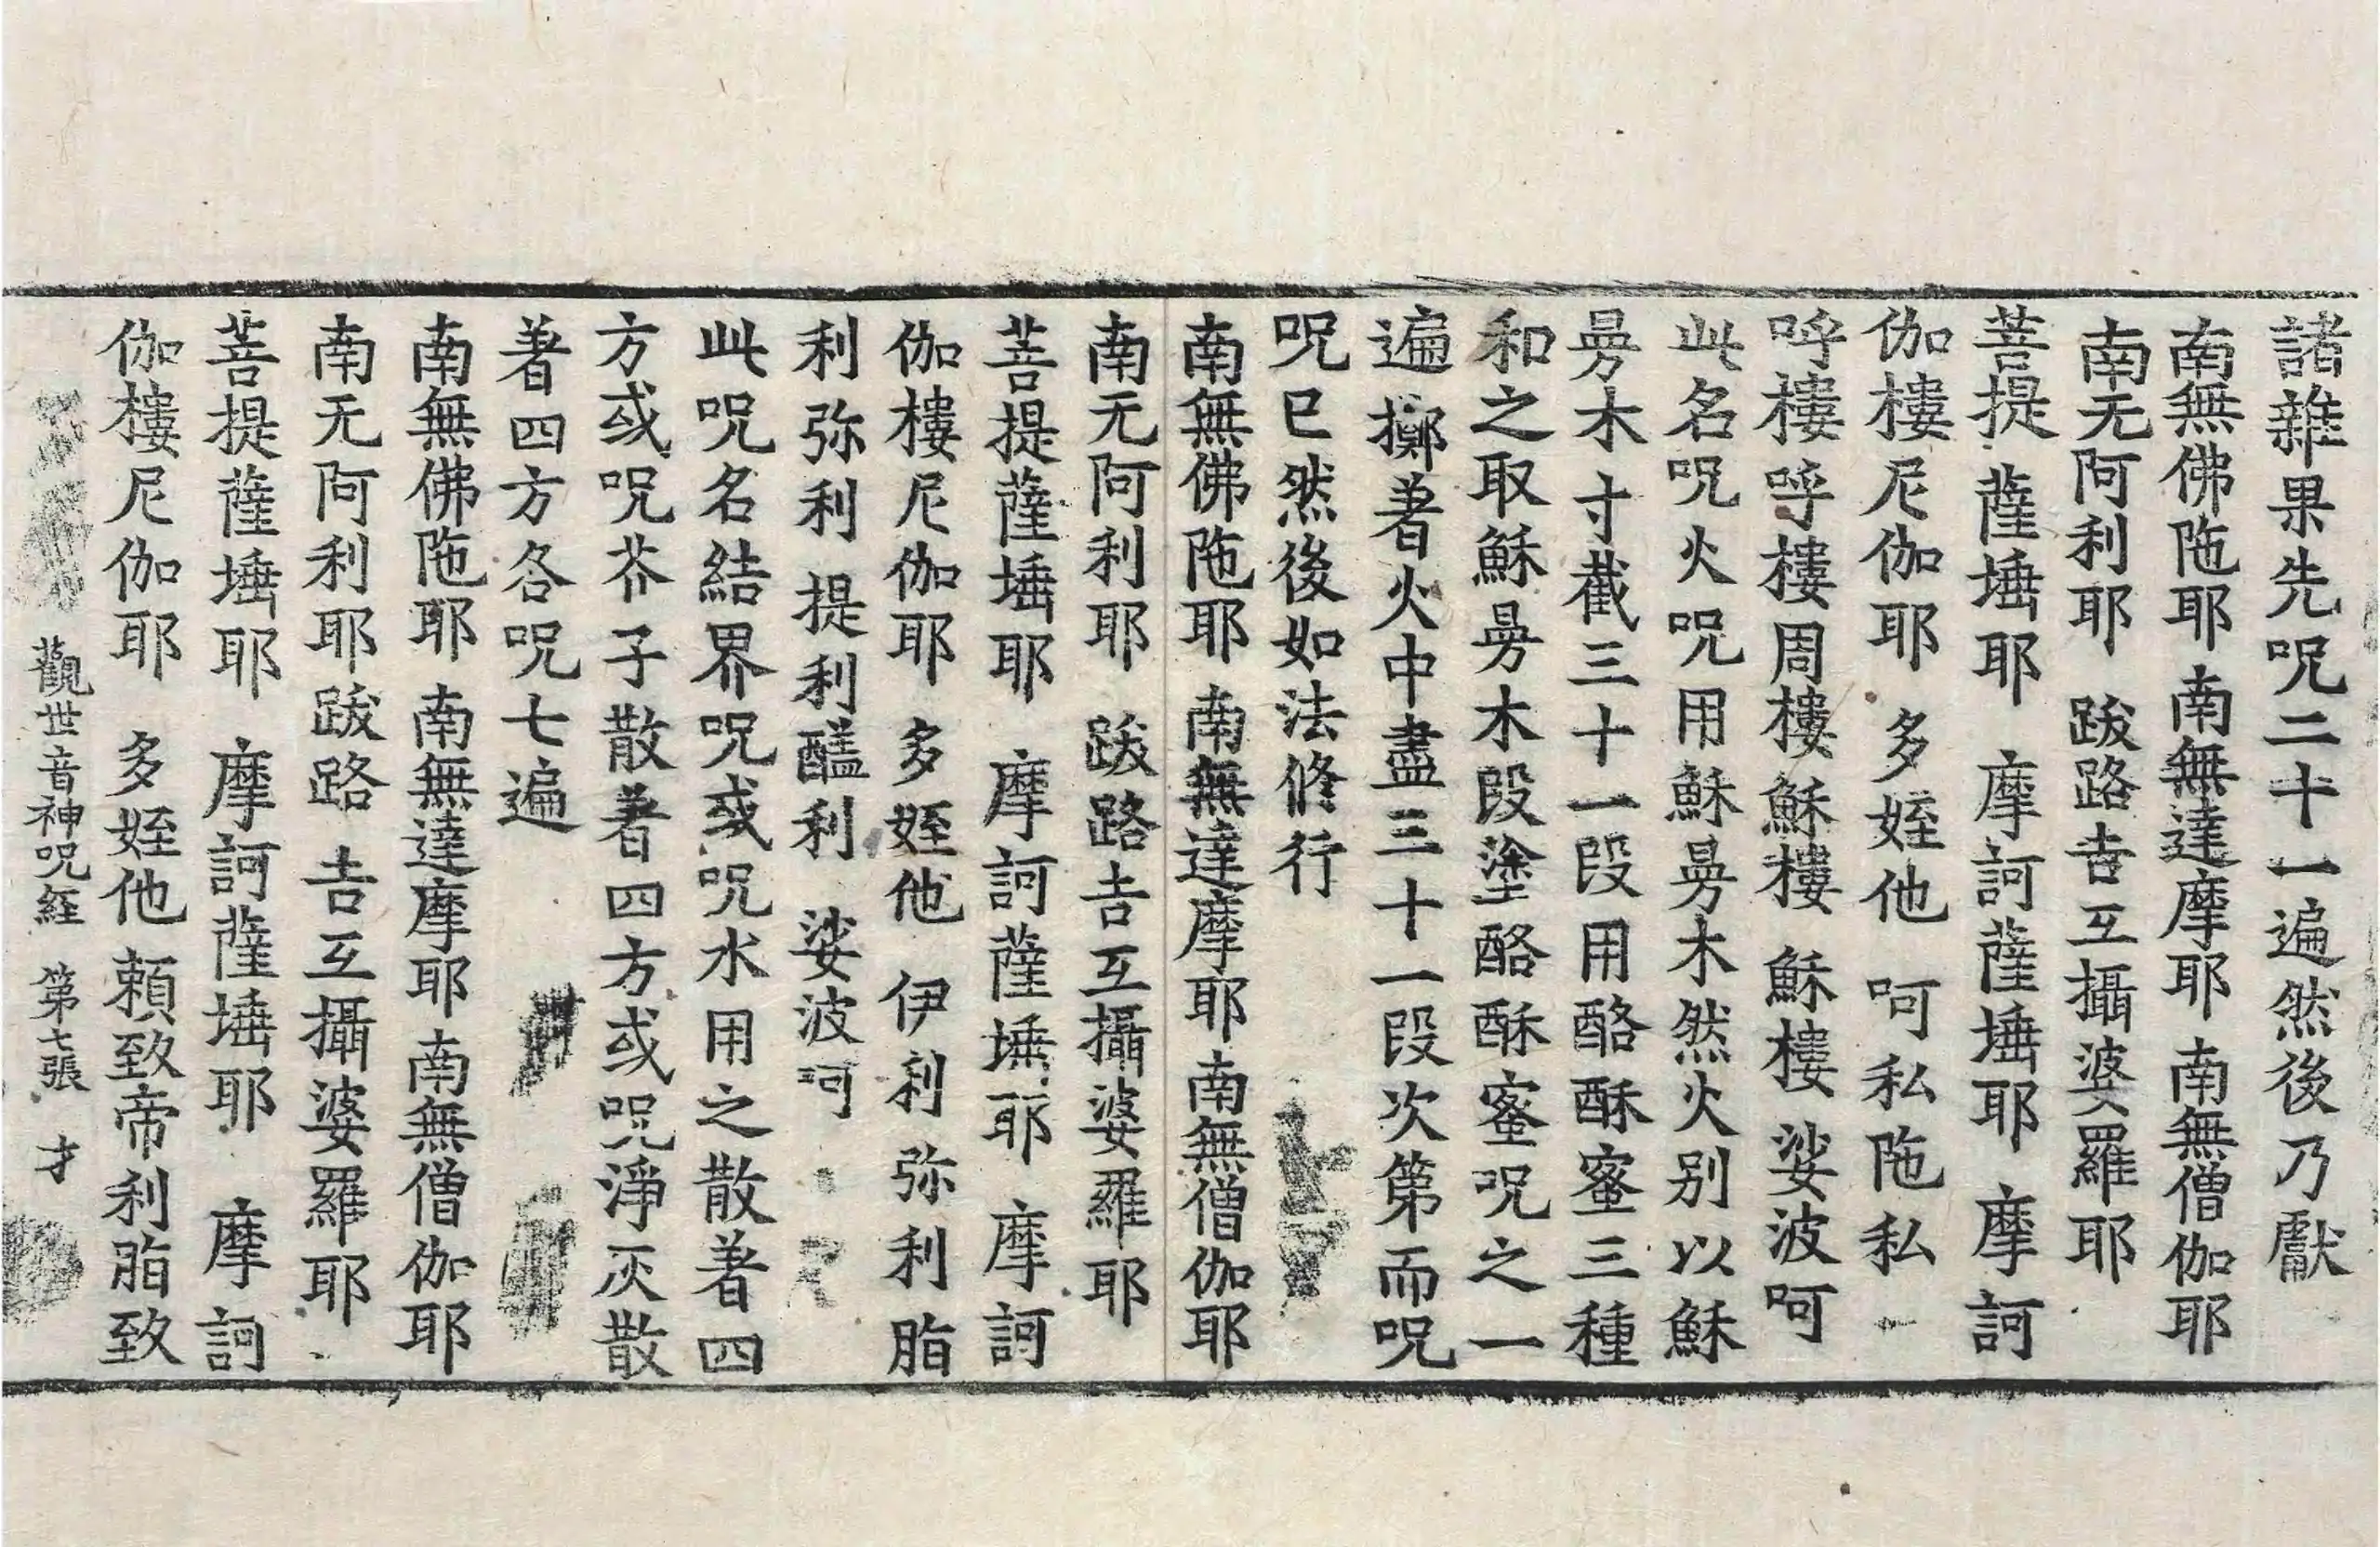 諸雜果先呪二十一遍然後乃獻
南無佛陁耶 南無達摩耶 南無僧伽耶
南无阿利耶 跋路吉互攝婆羅耶
菩提薩埵耶 摩訶薩埵耶 摩訶
伽樓尼伽耶 多姪他 呵私陁私
呼樓呼樓周樓穌樓 穌樓 娑波呵
此名呪火呪用穌㫄木然火別以穌
㫄木寸截三十一段用酪酥蜜三種
和之取穌㫄木段塗酪酥蜜呪之一
遍擲著火中盡三十一段次第而呪
呪已然後如法修行
南無佛陁耶 南無達摩耶 南無僧伽耶
南无阿利耶 跋路吉互攝婆羅耶
菩提薩埵耶 摩訶薩埵耶 摩訶
伽樓尼伽耶 多姪他 伊利弥利脂
利弥利提利醯利 娑波呵
此呪名結界呪或呪水用之散著四
方或呪芥子散著四方或呪淨灰散
著四方各呪七遍
南無佛陁耶 南無達摩耶 南無僧伽耶
南无阿利耶跋路吉互攝婆羅耶
菩提薩埵耶 摩訶薩埵耶 摩訶
伽樓尼伽耶 多姪他 頼致帝利脂致
觀世音神呪経 第七張 才